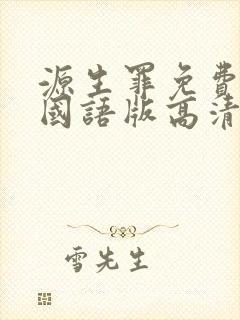 源生罪免費
國語版高清
雪先生